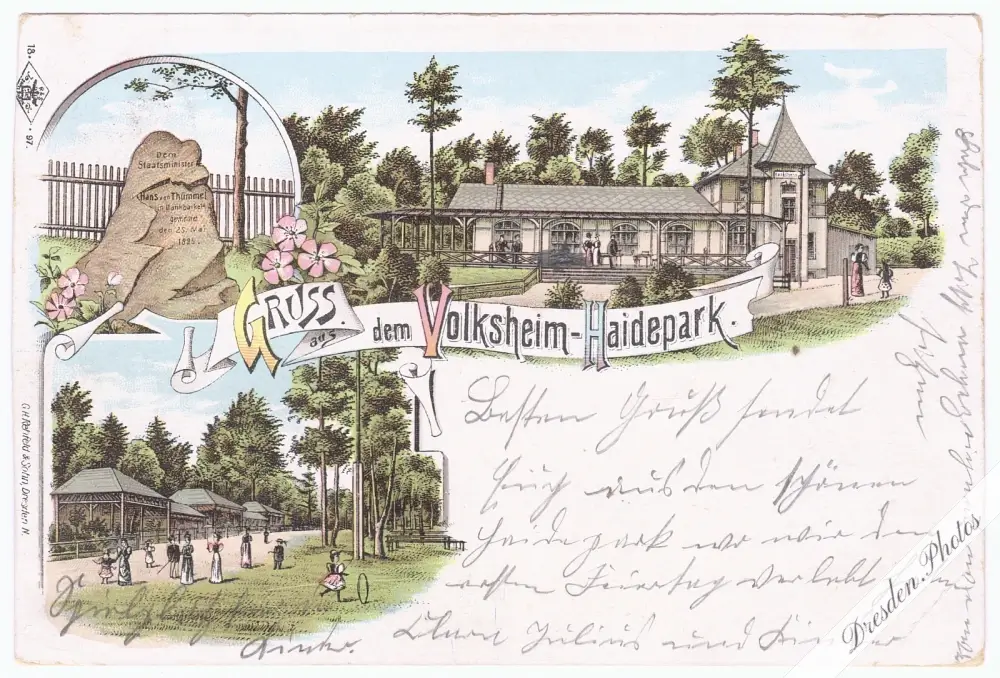 18·
·97.
Dem
Staatsminister
Hans von Thümmel
in Dankbarkeit
gewidmet
den 25. Mai
1895.
GRUSS
aus
dem Volksheim-Haidepark.
G.H. Rehfeld & Sohn, Dresden N.
Besten Gruß sendet
Euch aus dem schönen
Haidepark wo wir den
ersten Feiertag verlebt
Clara Julius und Kinder
Spielplatz
Kinder.
Dresden.Photos